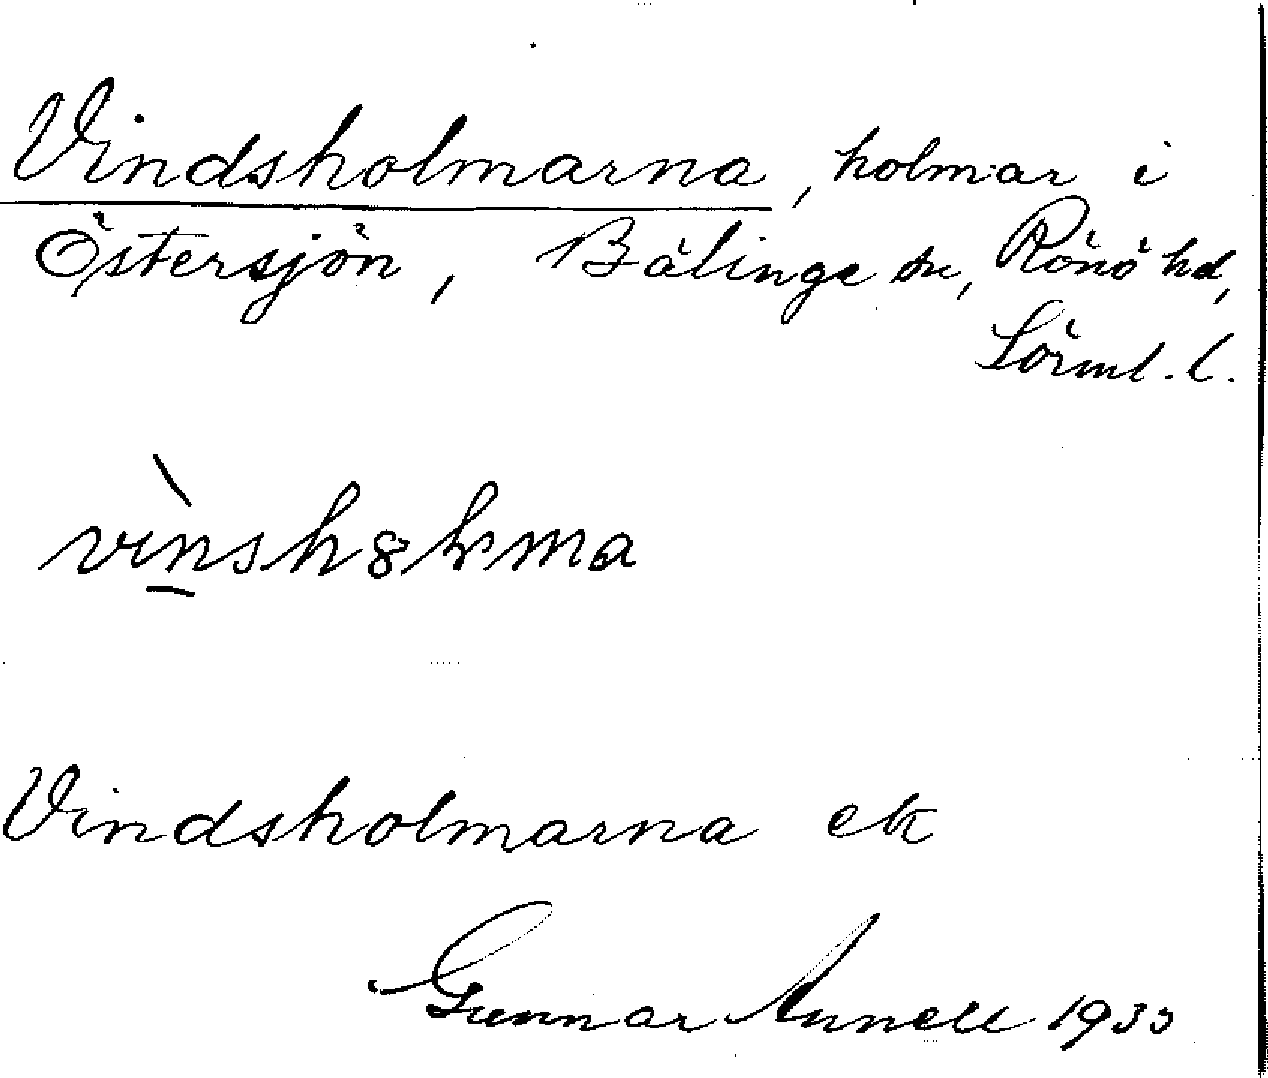 Vindsholmarna, holmar i
Östersjön, Bälinge sn, Rönö hd,
Sörml. l.
Vindsholmarna ek
Gunnar Annell 1933